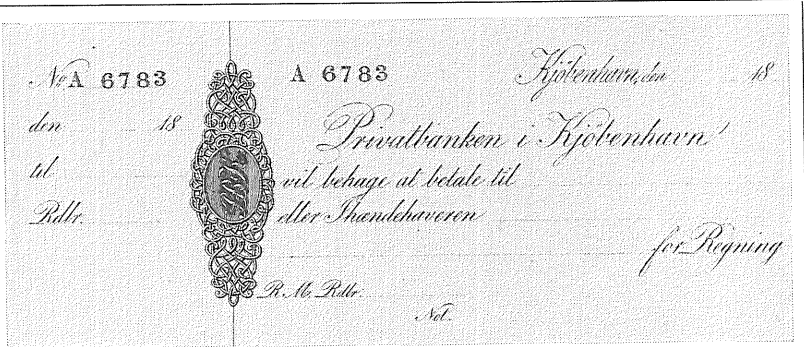 No A 6783
den 18
til
Rdlr.
A 6783
Kjöbenhavn, den 18
Privatbanken i Kjöbenhavn
vil behage at betale til
eller Ihændehaveren
for Regning
R. M. Rdlr.
Not.